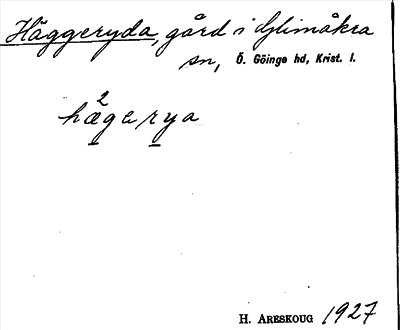 Häggeryda, gård i Glimåkra
sn, Ö. Göinge hd, Krist. l.
2
hægerya
H. ARESKOUG 1927